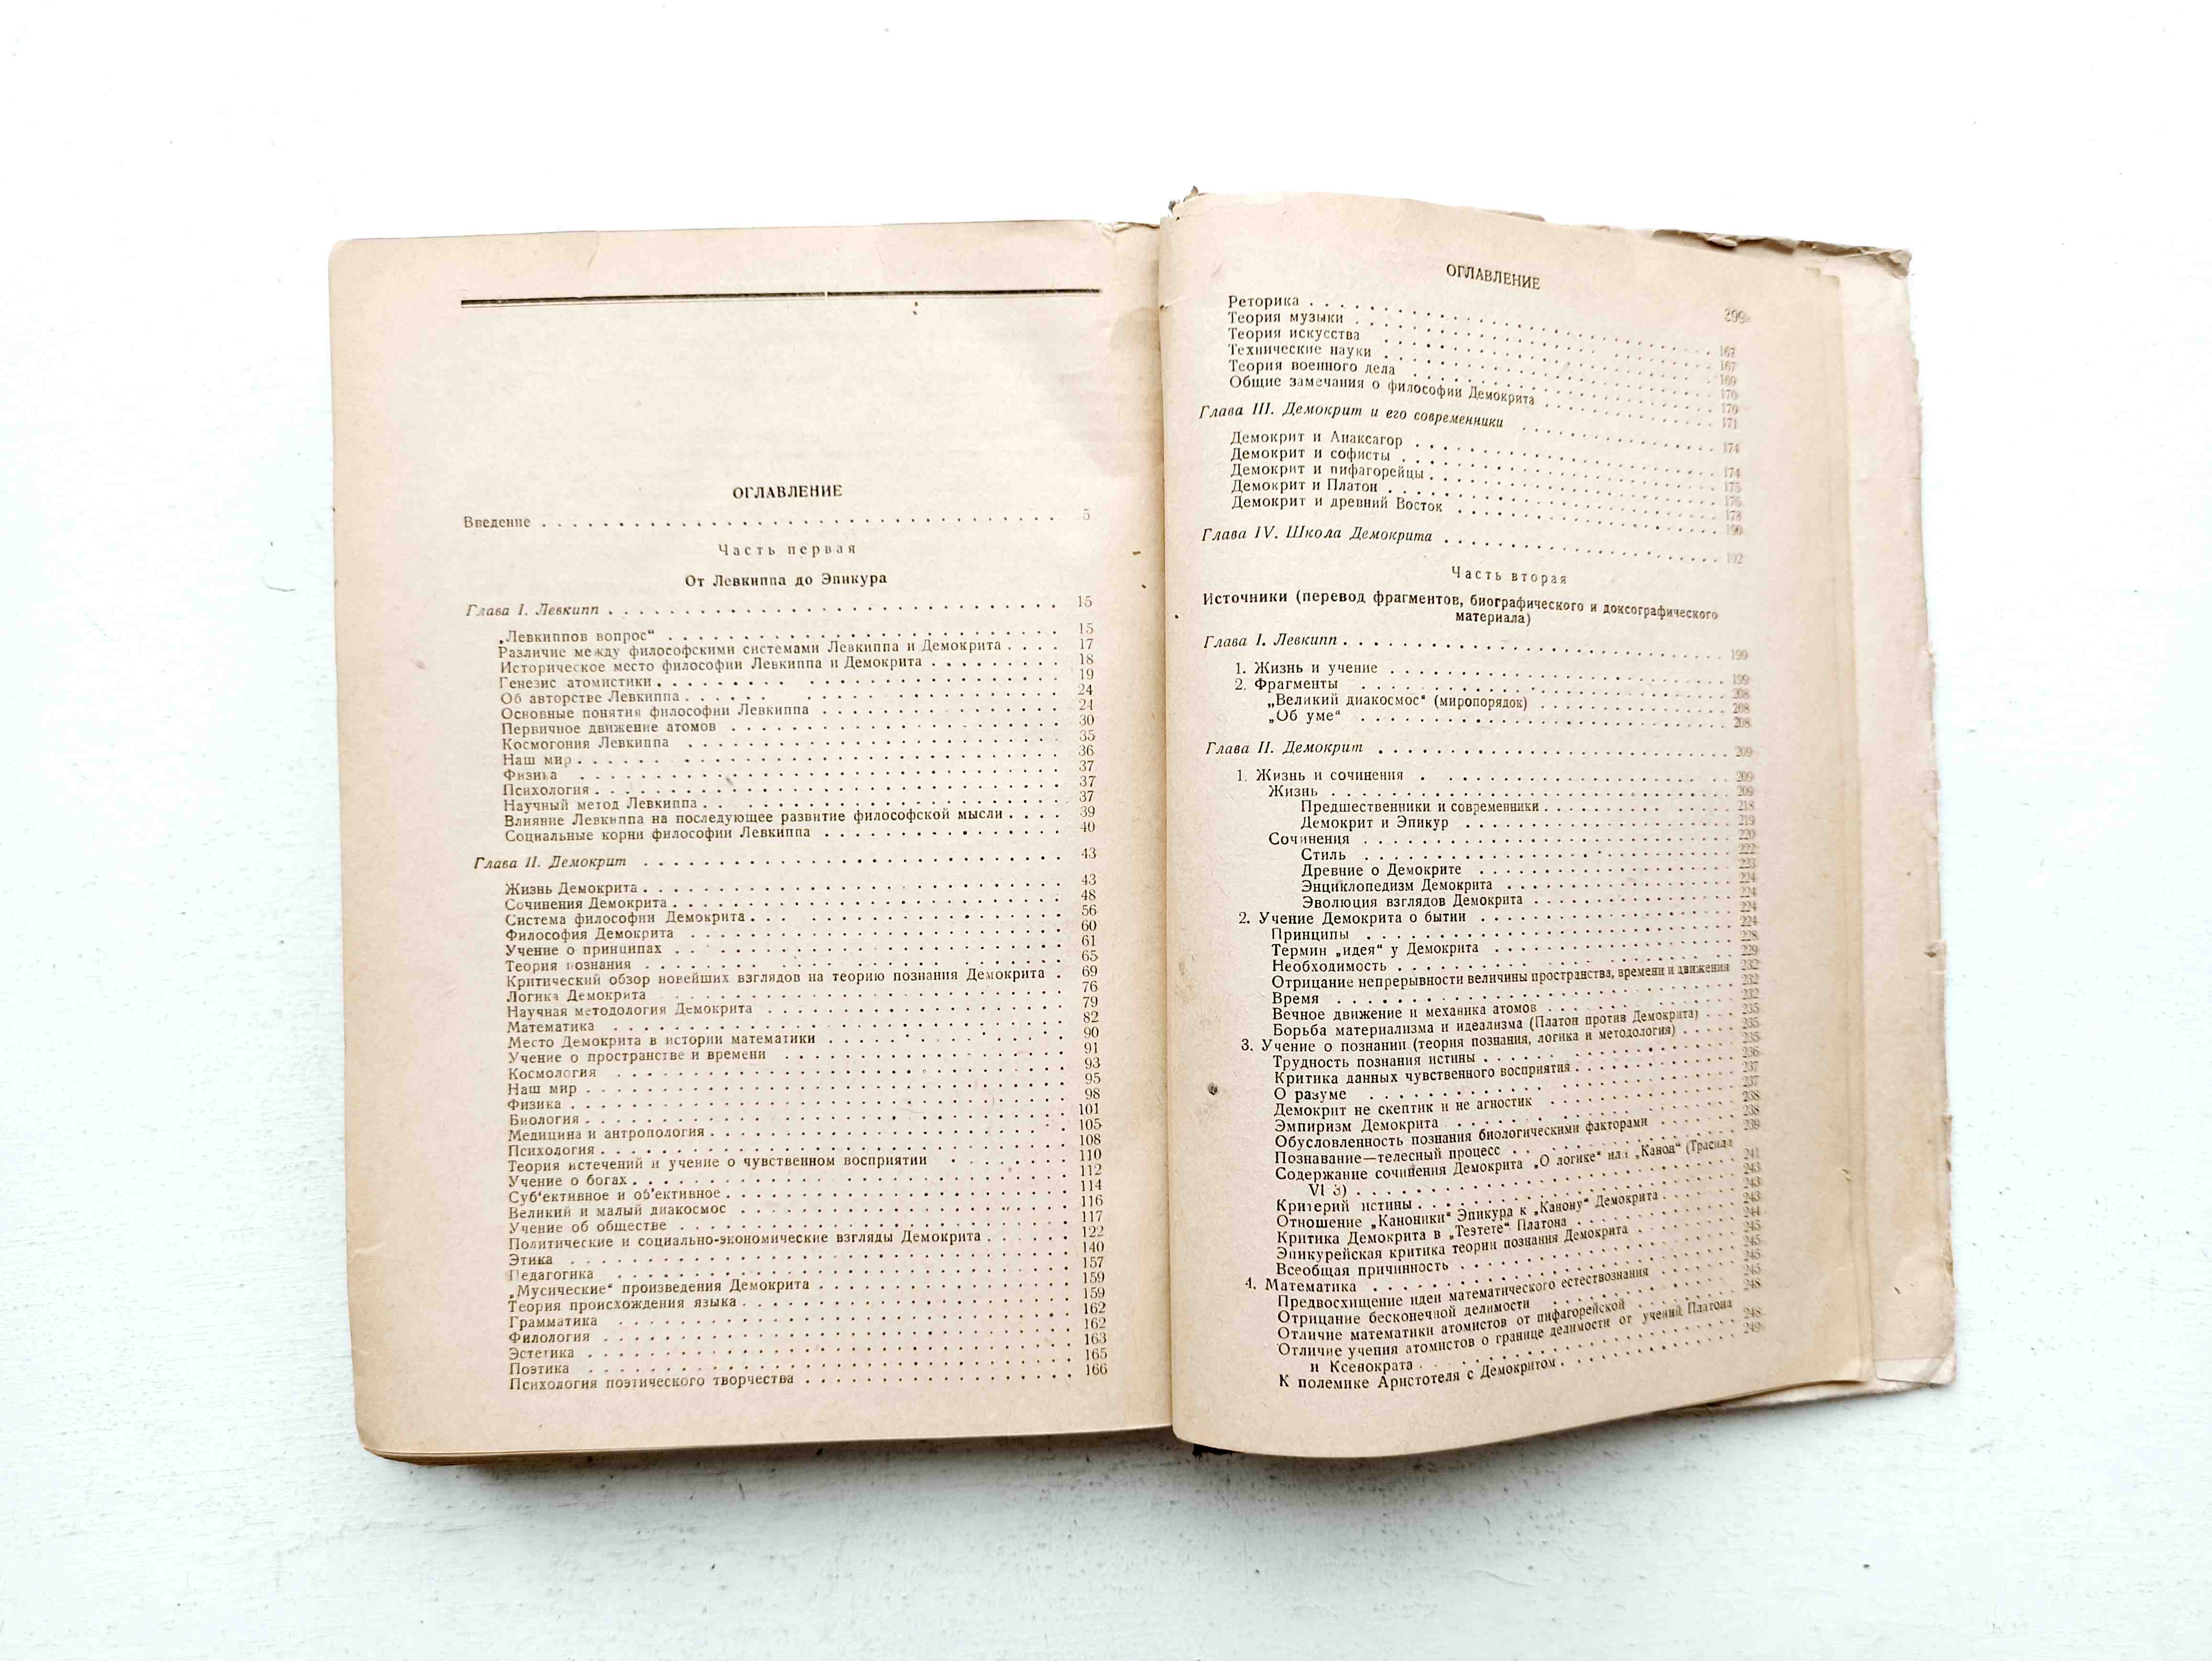 ОГЛАВЛЕНИЕ
Введение . . . . . 5
Часть первая
От Левкиппа до Эпикура
Глава I. Левкипп . . . . . 15
„Левкиппов вопрос“ . . . . . 15
Различие между философскими системами Левкиппа и Демокрита . . . . 17
Историческое место философии Левкиппа и Демокрита . . . . . 18
Генезис атомистики . . . . . 19
Об авторстве Левкиппа . . . . . 24
Основные понятия философии Левкиппа . . . . . 24
Первичное движение атомов . . . . . 30
Космогония Левкиппа . . . . . 35
Наш мир . . . . . 36
Физика . . . . . 37
Психология . . . . . 37
Научный метод Левкиппа . . . . . 37
Влияние Левкиппа на последующее развитие философской мысли . . . . 39
Социальные корни философии Левкиппа . . . . . 40
Глава II. Демокрит . . . . . 43
Жизнь Демокрита . . . . . 43
Сочинения Демокрита . . . . . 48
Система философии Демокрита . . . . . 56
Философия Демокрита . . . . . 60
Учение о принципах . . . . . 61
Теория познания . . . . . 65
Критический обзор новейших взглядов на теорию познания Демокрита . 69
Логика Демокрита . . . . . 76
Научная методология Демокрита . . . . . 79
Математика . . . . . 82
Место Демокрита в истории математики . . . . . 90
Учение о пространстве и времени . . . . . 91
Космология . . . . . 93
Наш мир . . . . . 95
Физика . . . . . 98
Биология . . . . . 101
Медицина и антропология . . . . . 105
Психология . . . . . 108
Теория истечений и учение о чувственном восприятии . . . . . 110
Учение о богах . . . . . 112
Суб‘ективное и об‘ективное . . . . . 114
Великий и малый диакосмос . . . . . 116
Учение об обществе . . . . . 117
Политические и социально-экономические взгляды Демокрита . . . . . 122
Этика . . . . . 140
Педагогика . . . . . 157
„Мусические“ произведения Демокрита . . . . . 159
Теория происхождения языка . . . . . 159
Грамматика . . . . . 162
Филология . . . . . 162
Эстетика . . . . . 163
Поэтика . . . . . 165
Психология поэтического творчества . . . . . 166
ОГЛАВЛЕНИЕ
399
Реторика . . . . . 167
Теория музыки . . . . . 167
Теория искусства . . . . . 169
Технические науки . . . . . 170
Теория военного дела . . . . . 170
Общие замечания о философии Демокрита . . . . . 171
Глава III. Демокрит и его современники . . . . . 174
Демокрит и Анаксагор . . . . . 174
Демокрит и софисты . . . . . 175
Демокрит и пифагорейцы . . . . . 176
Демокрит и Платон . . . . . 178
Демокрит и древний Восток . . . . . 190
Глава IV. Школа Демокрита . . . . . 192
Часть вторая
Источники (перевод фрагментов, биографического и доксографического
материала)
Глава I. Левкипп . . . . . 199
1. Жизнь и учение . . . . . 199
2. Фрагменты . . . . . 208
„Великий диакосмос“ (миропорядок) . . . . . 208
„Об уме“ . . . . . 208
Глава II. Демокрит . . . . . 209
1. Жизнь и сочинения . . . . . 209
Жизнь . . . . . 209
Предшественники и современники . . . . . 218
Демокрит и Эпикур . . . . . 219
Сочинения . . . . . 220
Стиль . . . . . 222
Древние о Демокрите . . . . . 223
Энциклопедизм Демокрита . . . . . 224
Эволюция взглядов Демокрита . . . . . 224
2. Учение Демокрита о бытии . . . . . 224
Принципы . . . . . 224
Термин „идея“ у Демокрита . . . . . 228
Необходимость . . . . . 229
Отрицание непрерывности величины пространства, времени и движения 232
Время . . . . . 232
Вечное движение и механика атомов . . . . . 232
Борьба материализма и идеализма (Платон против Демокрита) . . . 235
3. Учение о познании (теория познания, логика и методология) . . . . . 235
Трудность познания истины . . . . . 235
Критика данных чувственного восприятия . . . . . 236
О разуме . . . . . 237
Демокрит не скептик и не агностик . . . . . 237
Эмпиризм Демокрита . . . . . 238
Обусловленность познания биологическими факторами . . . . . 238
Познавание—телесный процесс . . . . . 239
Содержание сочинения Демокрита „О логике“ или „Канон“ (Трасилл
VI 3) . . . . . 241
Критерий истины . . . . . 243
Отношение „Каноники“ Эпикура к „Канону“ Демокрита . . . . . 243
Критика Демокрита в „Теэтете“ Платона . . . . . 243
Эпикурейская критика теории познания Демокрита . . . . . 244
Всеобщая причинность . . . . . 245
4. Математика . . . . . 245
Предвосхищение идеи математического естествознания . . . . . 245
Отрицание бесконечной делимости . . . . . 245
Отличие математики атомистов от пифагорейской . . . . . 248
Отличие учения атомистов о границе делимости от учений Платона
и Ксенократа . . . . . 248
К полемике Аристотеля с Демокритом . . . . . 249